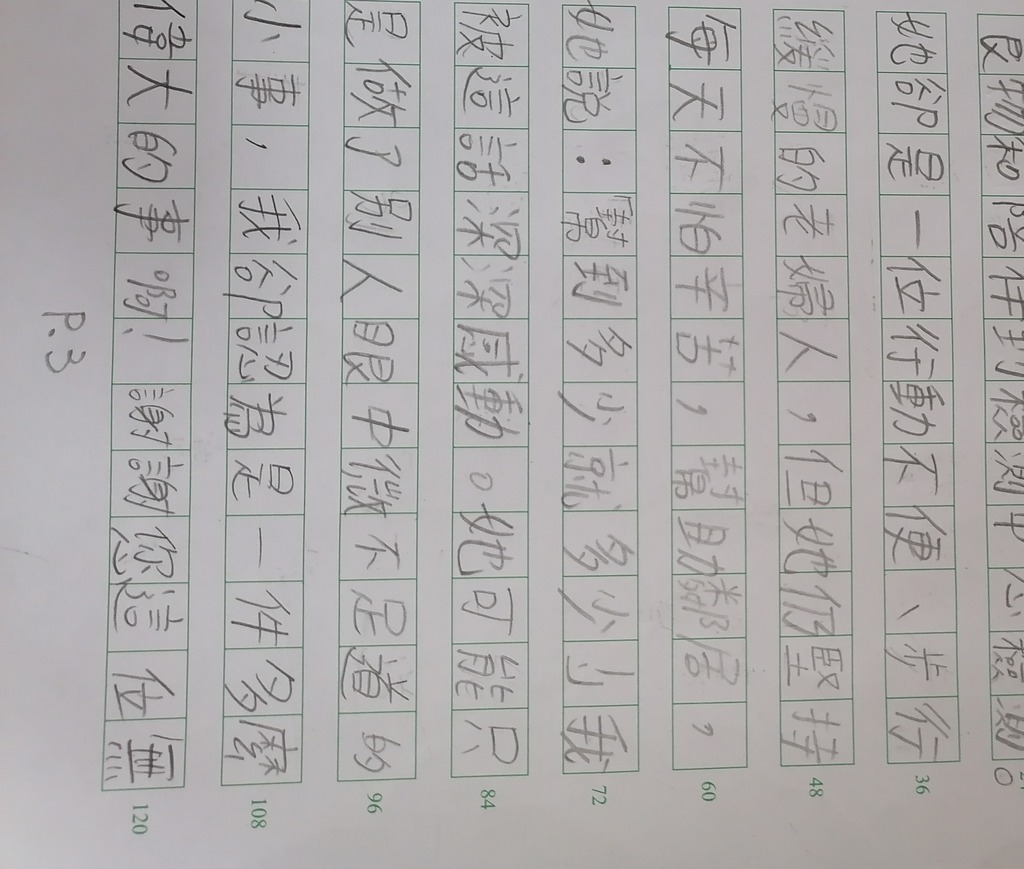 物和陪伴到檢測中心檢測。
她卻是一位行動不便、步行
36
緩慢的老婦人，但她仍堅持
48
每天不怕辛苦，幫助鄰居，
60
她說：「幫到多少就多少」我
72
被這話深深感動。她可能只
84
是做了別人眼中微不足道的
96
小事，我卻認為是一件多麼
108
偉大的事啊！謝謝您這位無
120
P.3